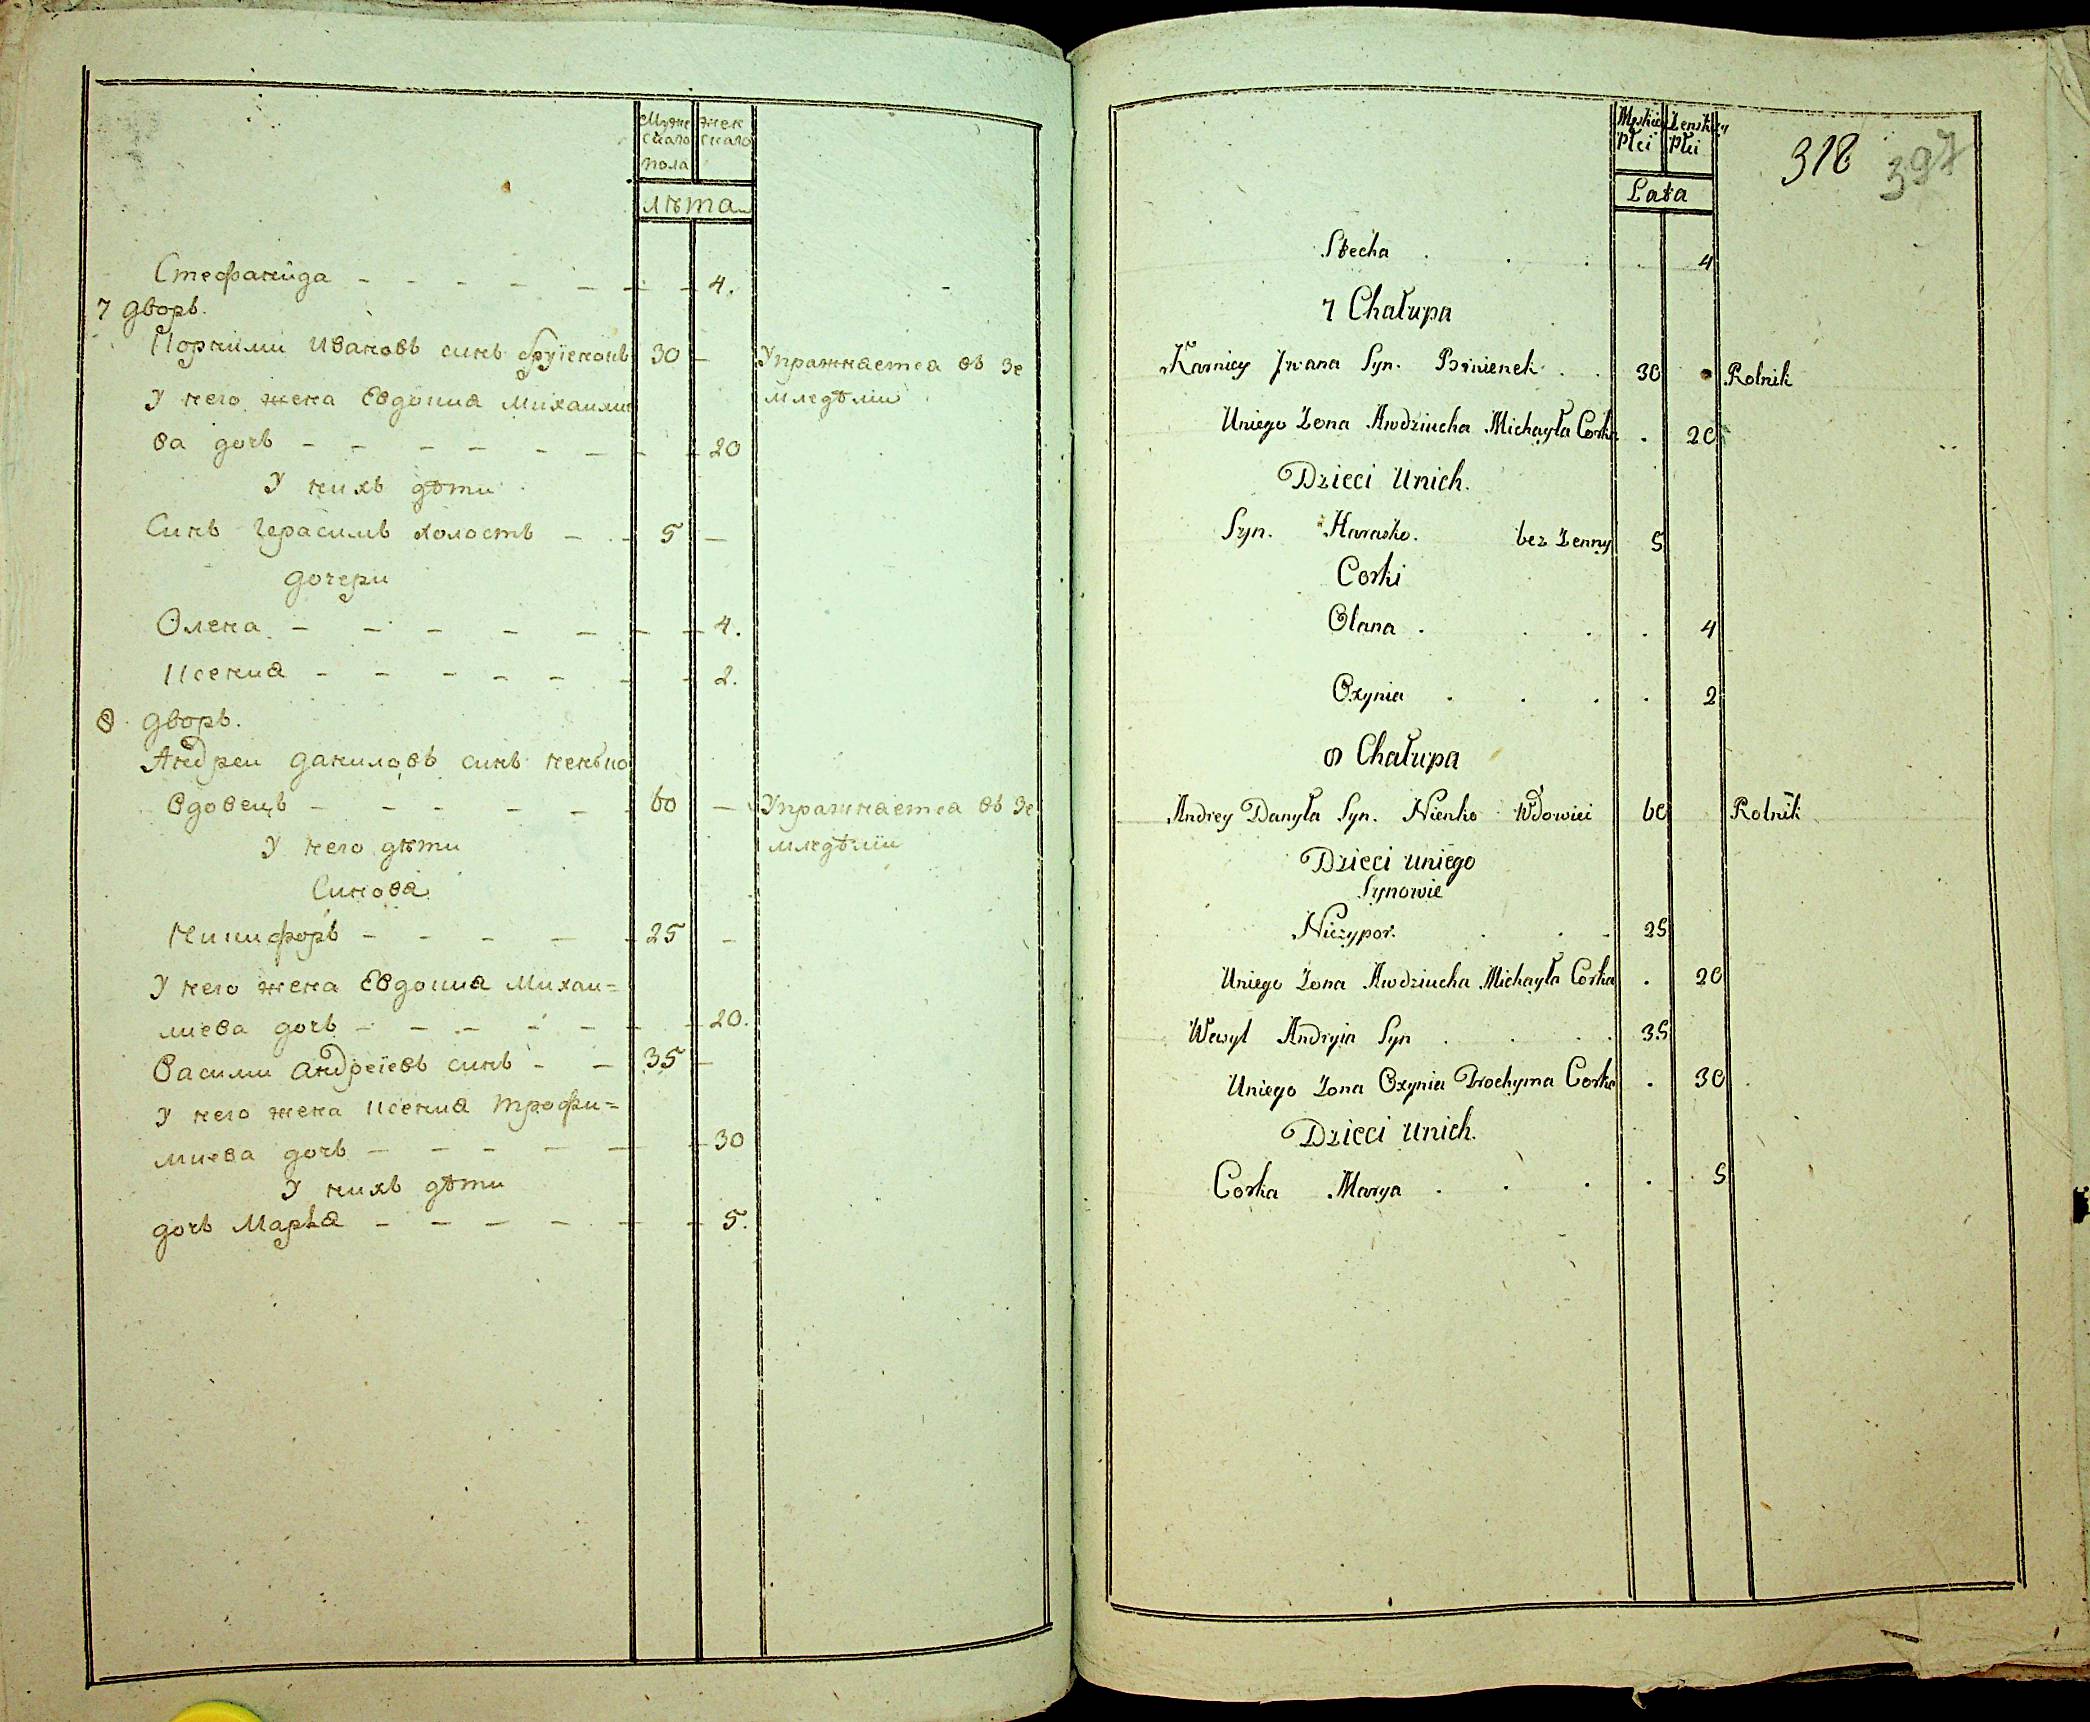 Муже жен
скаго скаго
пола
лѣта
Стефанида - - - - - - - 4.
7 дворъ.
Корнили Ивановъ синъ 30 - Упражняется въ Зе
У него жена Евдокия Михаили мледѣлии
ва дочь - - - - - - - 20
У нихъ дѣти
Синъ Герасимъ холостъ - - 5 -
дочери
Олена - - - - - - - 4.
Ксения - - - - - - - 2.
8 дворъ.
Андреи даниловъ синъ ненько
Вдовецъ - - - - - - 60 - Упражняется въ Зе
У него дѣти мледѣлии
Синовя
Никифоръ - - - - - 25 -
У него жена Евдокия Михаи=
лиева дочь - - - - - - - 20.
Василии андреievъ синъ - - 35 -
У него жена Ксения трофи=
миева дочь - - - - - - 30
У нихъ дѣти
дочь Марья - - - - - - 5.
Męskiey Żenskiey
Płci Płci
318 397
Lata
Stecha . . . . 4
7 Chałupa
Karniey Jwana Syn. Brinienek . . 30 Rolnik
Uniego Zona Awdziucha Michayła Corka . 20
Dzieci Unich.
Syn. Harasko. bez Zenny 5
Corki
Olana . . . . 4
Oxynia . . . . . 2
8 Chałupa
Andrey Danyła Syn. Nienko Wdowiec 60 Rolnik
Dzieci uniego
Synowie
Niczypor. . . . 25
Uniego Zona Awdziucha Michayła Corka . 20
Wasyl Andryia Syn . . . . 35
Uniego Zona Oxynia Trochyma Corka . 30
Dzieci Unich.
Corka Marya . . . . 5